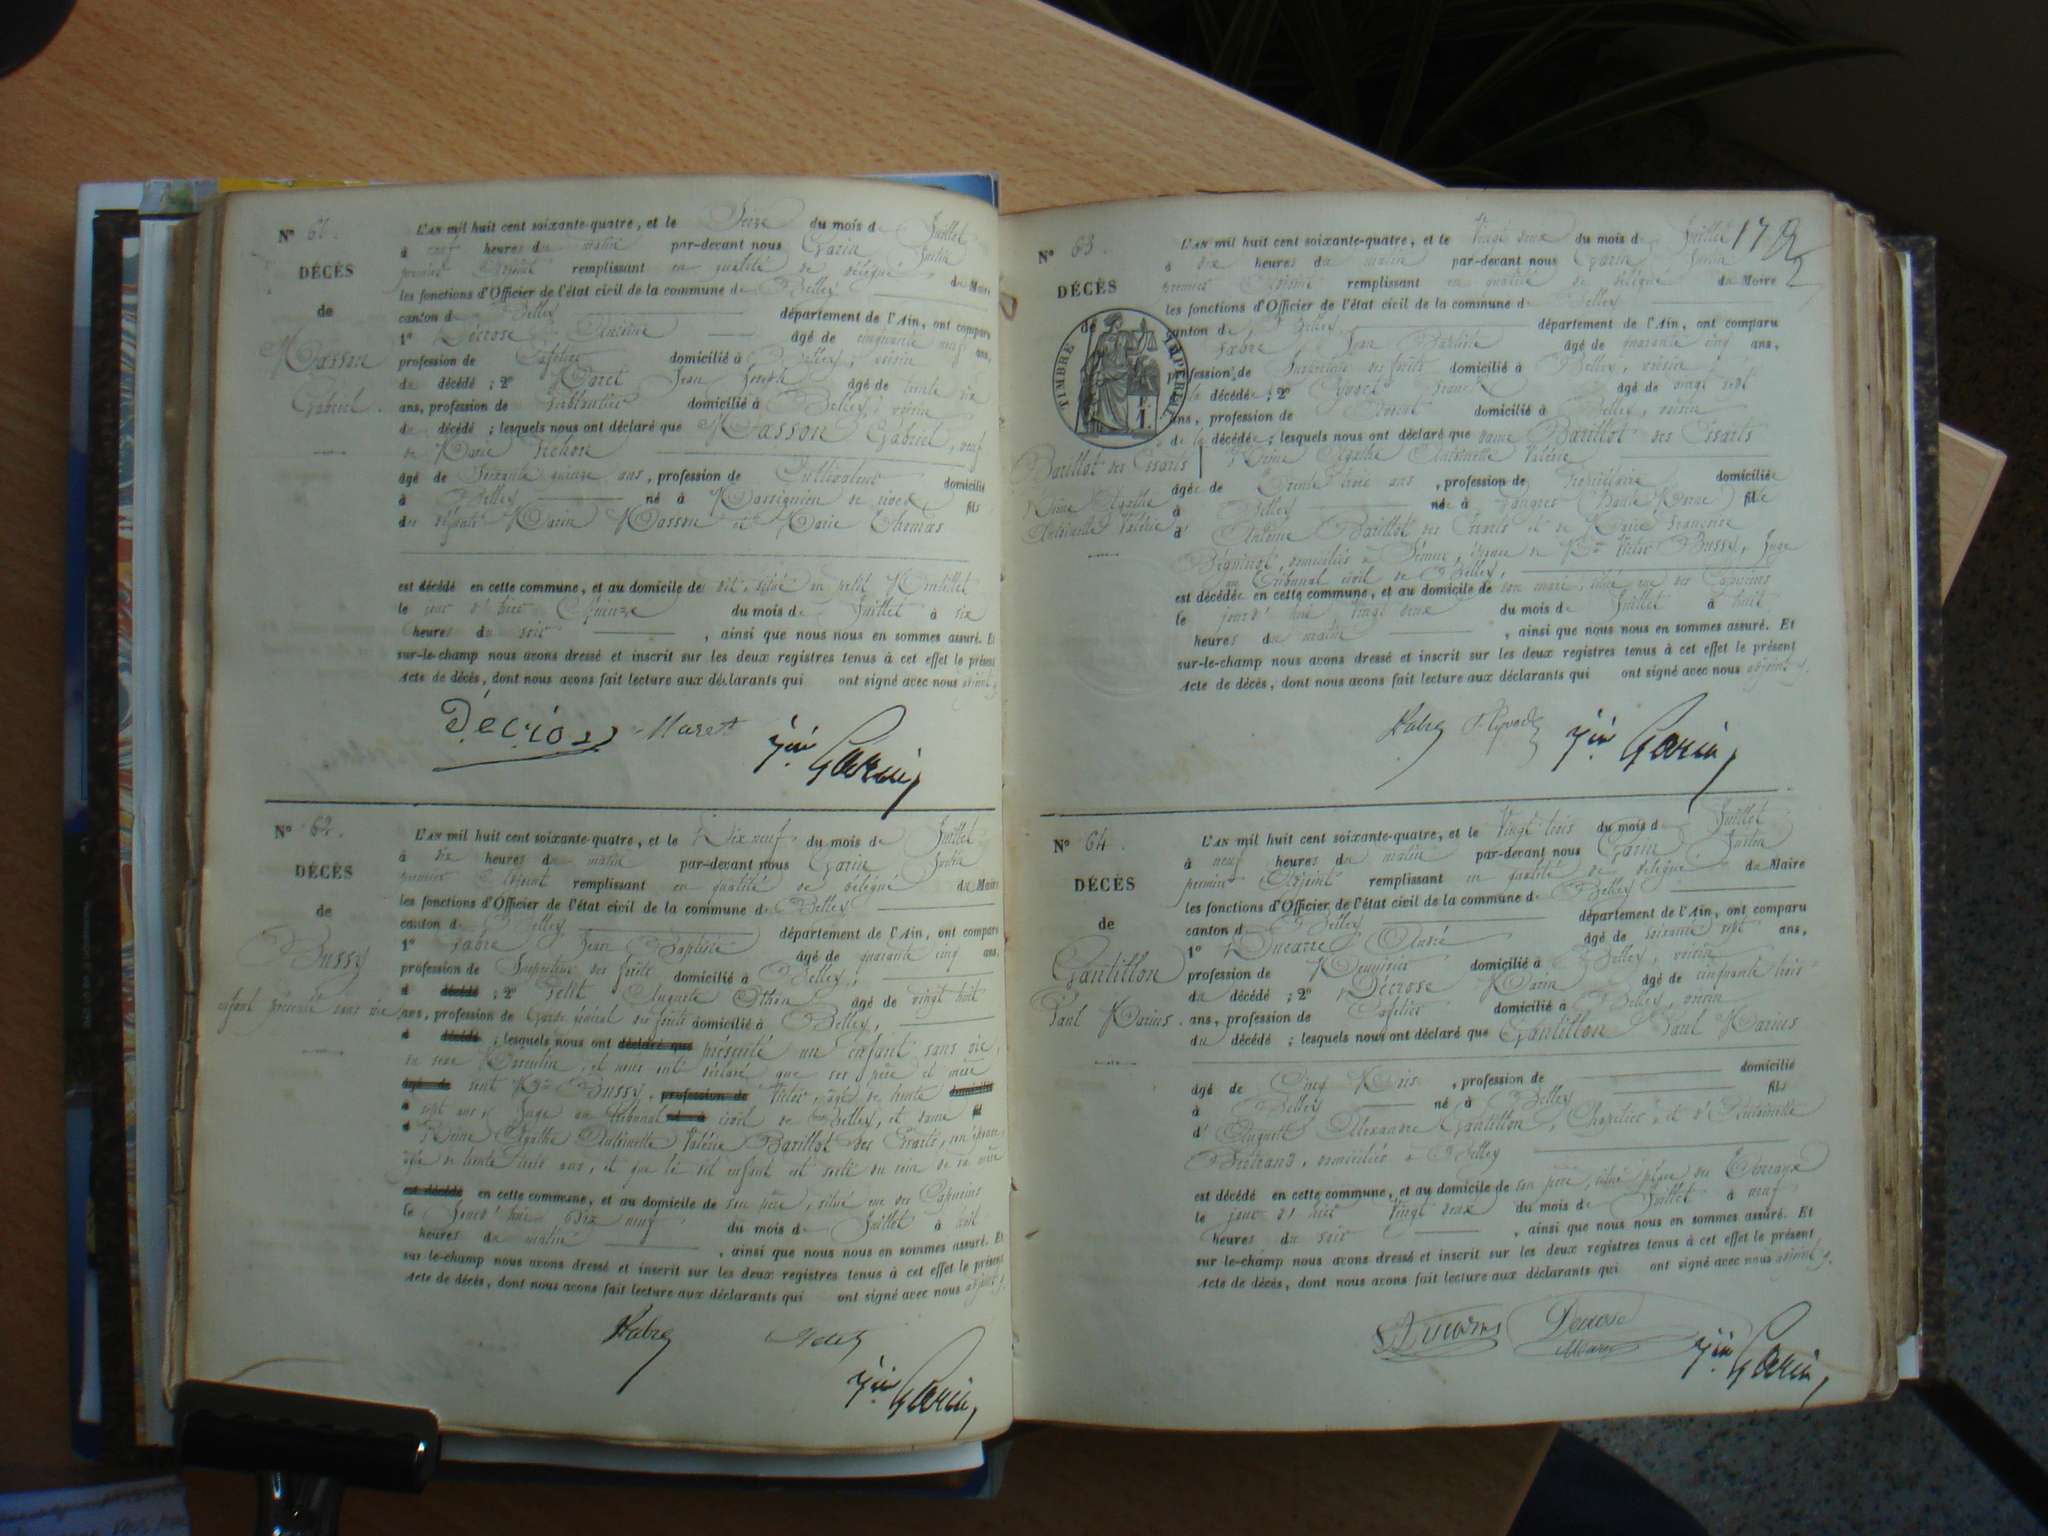 N° 61.
DÉCÈS
de
Masson
Gabriel.
L'AN mil huit cent soixante-quatre, et le Seize du mois de Juillet
à neuf heures du matin par-devant nous Garin Justin
premier Adjoint remplissant en qualité de délégué du Maire
les fonctions d'Officier de l'état civil de la commune de Belley
canton de Belley département de l'Ain, ont comparu
1° Décrose Antoine âgé de cinquante neuf ans,
profession de Cafetier domicilié à Belley, voisin
du décédé ; 2° Maret Jean Joseph âgé de trente six
ans, profession de Ferblantier domicilié à Belley, voisin
du décédé ; lesquels nous ont déclaré que Masson Gabriel, veuf
de Marie Pichon
âgé de Soixante quinze ans, profession de Cultivateur domicilié
à Belley né à Massignieu de rives fils
des défunts Marin Masson et Marie Thomas
est décédé en cette commune, et au domicile de dit, situé en petit
le jour d'hier Quinze du mois de Juillet à six
heures du soir , ainsi que nous nous en sommes assuré. Et
sur-le-champ nous avons dressé et inscrit sur les deux registres tenus à cet effet le présent
Acte de décès, dont nous avons fait lecture aux déclarants qui ont signé avec nous adjoint
Décrose Maret Jin Garin
N° 62.
DÉCÈS
de
Bussy
enfant présenté sans vie
L'AN mil huit cent soixante-quatre, et le Dix neuf du mois de Juillet
à dix heures du matin par-devant nous Garin Justin
premier Adjoint remplissant en qualité de délégué du Maire
les fonctions d'Officier de l'état civil de la commune de Belley
canton de Belley département de l'Ain, ont comparu
1° Fabre Jean Baptiste âgé de quarante cinq ans,
profession de Inspecteur des forêts domicilié à Belley,
d décédé ; 2° Petit Auguste Othon âgé de vingt huit
ans, profession de Garde général des forêts domicilié à Belley,
d décédé ; lesquels nous ont déclaré que présenté un enfant sans vie,
du sexe Masculin, et nous ont déclaré que ses père et mère
âgé de sont Mr Bussy, profession de Victor, âgé de trente domicilié
à sept ans, Juge au tribunal né à civil de Belley, et dame fil
d Reine Agathe Antoinette Valérie Barillot des Essarts, son épouse,
âgée de trente trois ans, et que le dit enfant est sorti du sein de sa mère
est décédé en cette commune, et au domicile de son père, situé rue des Capucins
le Jourd'hui Dix neuf du mois de Juillet à huit
heures du matin , ainsi que nous nous en sommes assuré. Et
sur-le-champ nous avons dressé et inscrit sur les deux registres tenus à cet effet le présent
Acte de décès, dont nous avons fait lecture aux déclarants qui ont signé avec nous adjoint
Fabre Petit
Jin Garin
172
N° 63.
DÉCÈS
de
TIMBRE IMPÉRIAL
F. 1.
Barillot des Essarts
Reine Agathe
Antoinette Valérie
L'AN mil huit cent soixante-quatre, et le Vingt deux du mois de Juillet
à dix heures du matin par-devant nous Garin Justin
premier Adjoint remplissant en qualité de délégué du Maire
les fonctions d'Officier de l'état civil de la commune de Belley
canton de Belley département de l'Ain, ont comparu
Fabre Jean Baptiste âgé de quarante cinq ans,
profession de Inspecteur des forêts domicilié à Belley, voisin
de la décédée ; 2° Franck âgé de vingt sept
ans, profession de Avocat domicilié à Belley, voisin
de la décédée ; lesquels nous ont déclaré que dame Barillot des Essarts
Reine Agathe Antoinette Valérie
âgée de Trente trois ans , profession de Propriétaire domiciliée
à Belley née à Langres Haute Marne fille
d' Antoine Barillot des Essarts et de Marie Françoise
domiciliés à Semur, épouse de Mr Victor Bussy, Juge
au Tribunal civil de Belley,
est décédée en cette commune, et au domicile de son mari, situé rue des Capucins
le jourd'hui Vingt deux du mois de Juillet à huit
heures du matin , ainsi que nous nous en sommes assuré. Et
sur-le-champ nous avons dressé et inscrit sur les deux registres tenus à cet effet le présent
Acte de décès, dont nous avons fait lecture aux déclarants qui ont signé avec nous adjoint
Fabre Jin Garin
N° 64.
DÉCÈS
de
Gantillon
Paul Marius.
L'AN mil huit cent soixante-quatre, et le Vingt trois du mois de Juillet
à neuf heures du matin par-devant nous Garin Justin
premier Adjoint remplissant en qualité de délégué du Maire
les fonctions d'Officier de l'état civil de la commune de Belley
canton de Belley département de l'Ain, ont comparu
1° Ducarre André âgé de soixante sept ans,
profession de Menuisier domicilié à Belley, voisin
du décédé ; 2° Décrose Marin âgé de cinquante trois
ans, profession de Cafetier domicilié à Belley, voisin
du décédé ; lesquels nous ont déclaré que Gantillon Paul Marius
âgé de Cinq Mois , profession de domicilié
à Belley né à Belley fils
d' Auguste Alexandre Gantillon, Chapelier, et d'Antoinette
Bertrand, domiciliés à Belley
est décédé en cette commune, et au domicile de son père, situé place des Terreaux
le jour d'hier Vingt deux du mois de Juillet à neuf
heures du soir , ainsi que nous nous en sommes assuré. Et
sur-le-champ nous avons dressé et inscrit sur les deux registres tenus à cet effet le présent
Acte de décès, dont nous avons fait lecture aux déclarants qui ont signé avec nous adjoint
Ducarre Decrose Marin Jin Garin